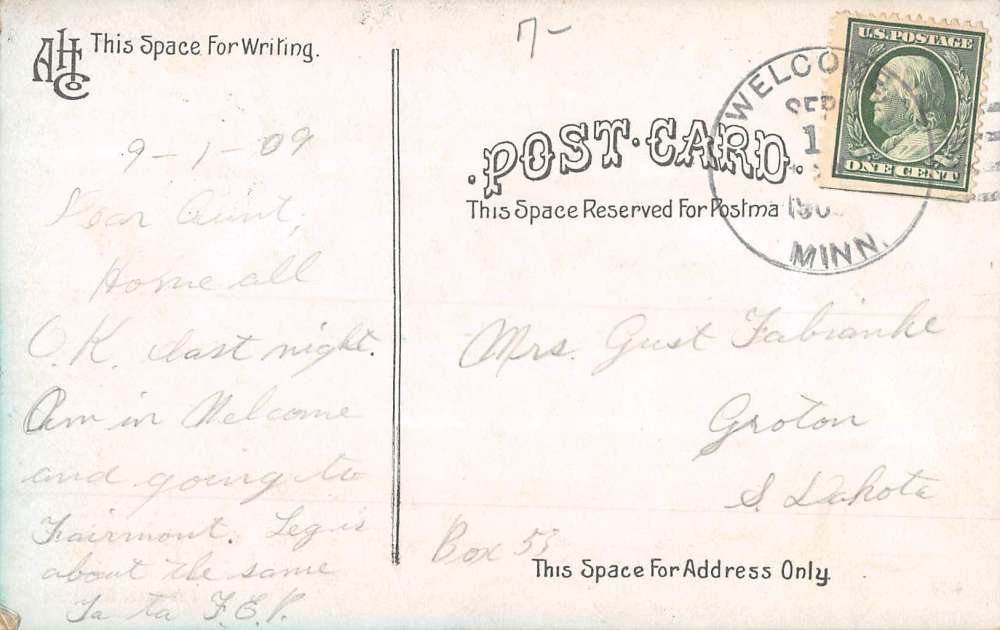 AHCo
This Space For Writing.
9-1-09
Dear Aunt,
Home all
O.K. last night.
Am in Welcome
and going to
Fairmont. Leg is
about the same
Ta ta F.E.P.
7-
POST-CARD.
This Space Reserved For Postma
WELCO
SEP
1
190
MINN.
U.S. POSTAGE
ONE CENT
Mrs. Gust Fabianke
Groton
S. Dakota
Box 53
This Space For Address Only.